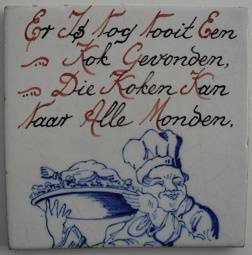 Er Is Nog Nooit Een
Kok Gevonden,
Die Koken Kan
Naar Alle Monden.